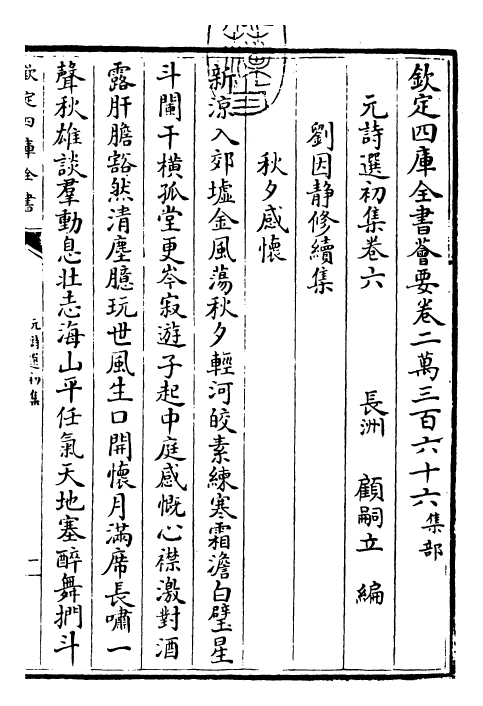 欽定四庫全書薈要卷二萬三百六十六集部
元詩選初集卷六　　長洲　顧嗣立　編
劉因静修續集
秋夕感懷
新涼入郊墟金風蕩秋夕輕河皎素練寒霜澹白璧星
斗闌干橫孤堂更岑寂遊子起中庭感慨心襟激對酒
露肝膽豁然清塵臆玩世風生口開懷月滿席長嘯一
聲秋雄談羣動息壯志海山平任氣天地塞醉舞捫斗
欽定四庫全書
元詩選初集
一